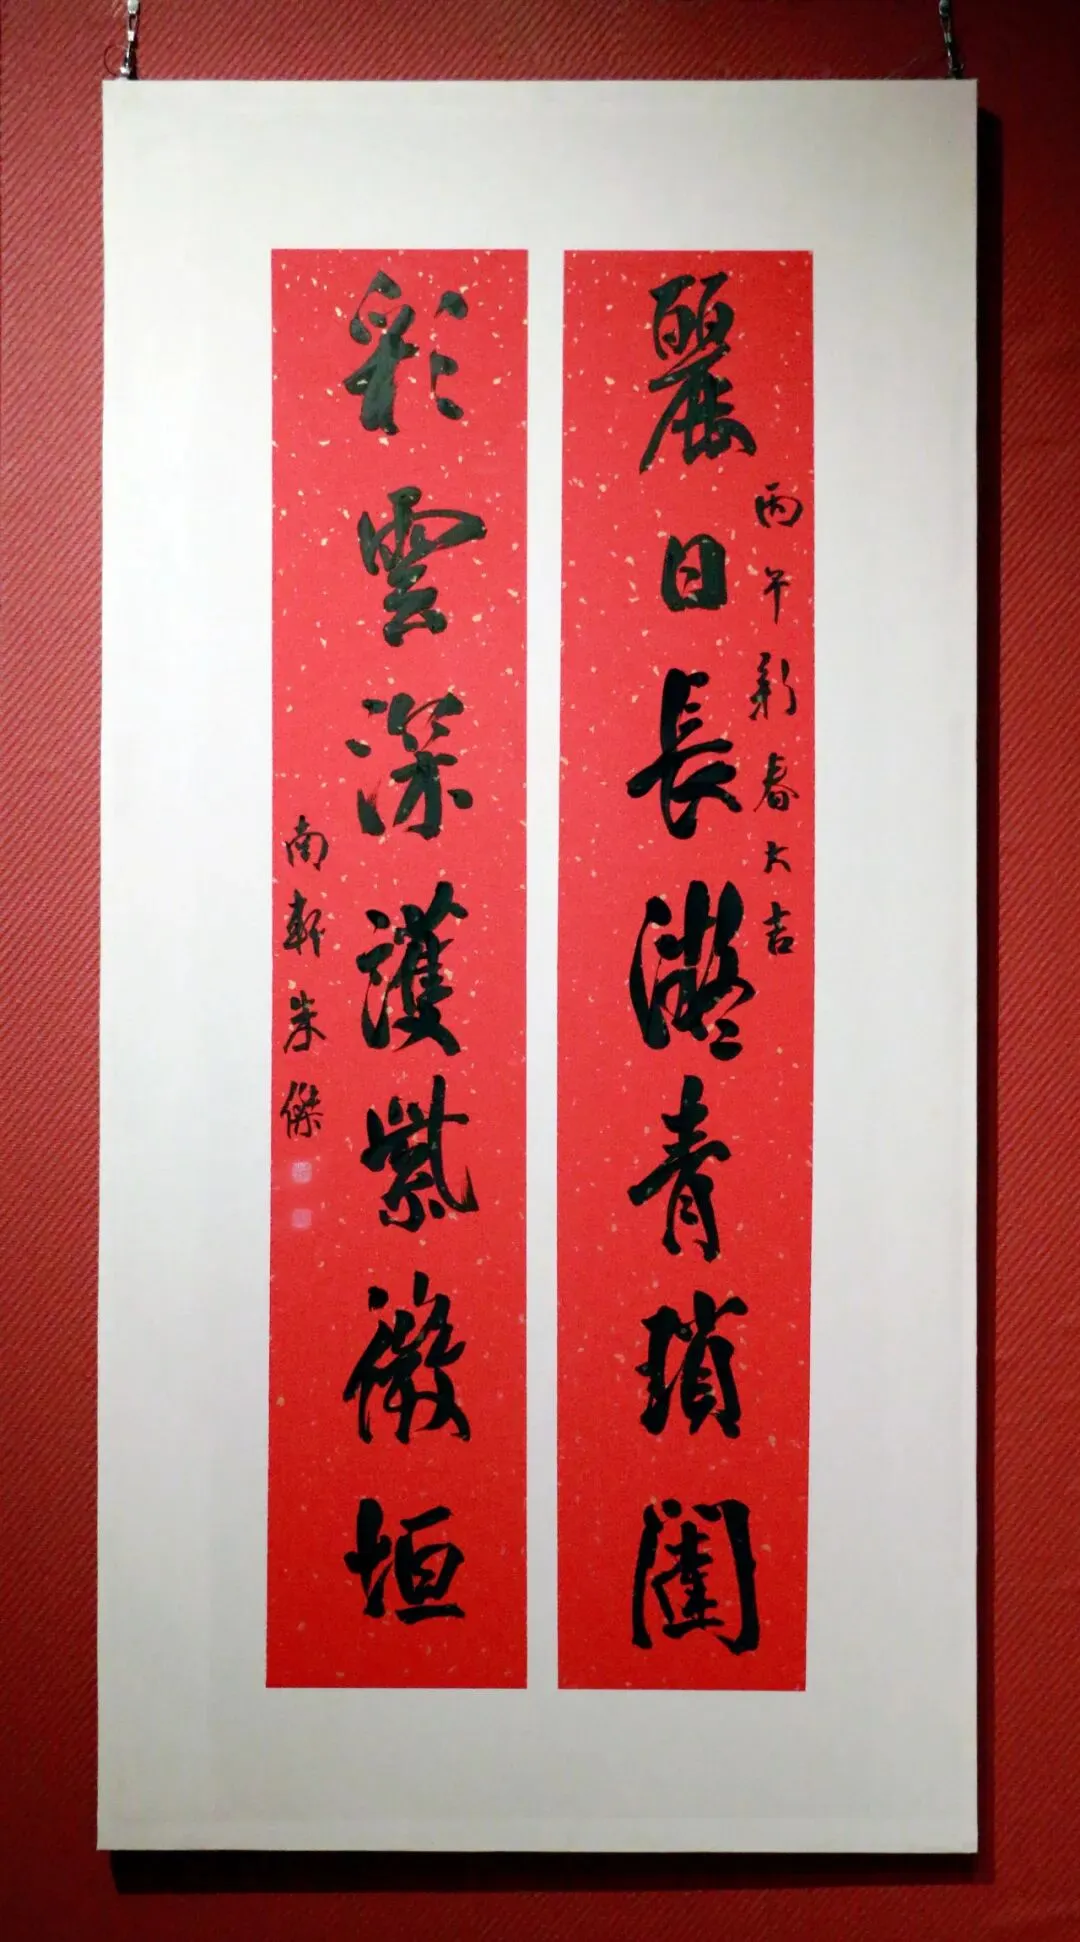 丙午新春大吉
麗日長凝青瑣闥
彩雲深護紫微垣
南軒朱傑